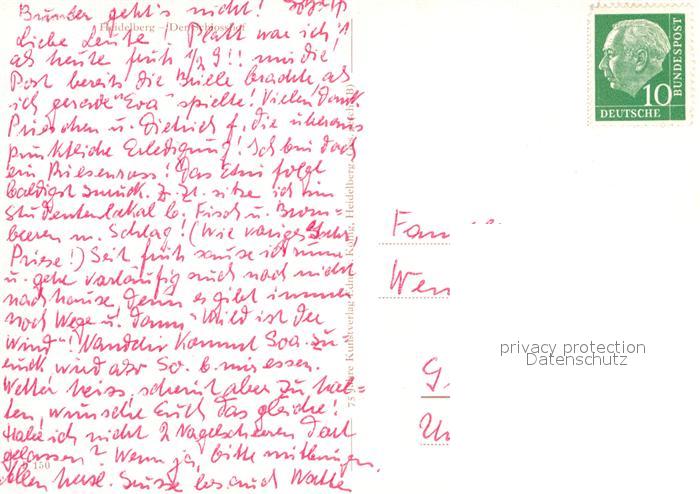 Bunter geht's nicht!
Heidelberg - Der Schlosshof
Liebe Leute! Platt war ich,
als heute früh 1/2 9!! mir die
Post bereits die Brille brachte als
ich gerade "Eva" spielte! Vielen Dank
Prieschen u. Dietrich f. die überaus
pünktliche Erledigung! Ich bin doch
ein Riesenross! Das Etui folgt
baldigst zurück. Z. Zt. sitze ich im
Studentenlokal b. Fisch u. Brom-
beeren m. Schlag! (Wie voriges Jahr
Priese!) Seit früh sause ich rum
u. gehe vorläufig auch noch nicht
nachhause, denn es gibt immer
noch Wege u. dann "Wild ist der
Wind"! kommt Soa. zu
euch wird also So. b. mir essen.
Wetter heiss, scheint aber zu hal-
ten, wünsche Euch das gleiche!
Habe ich nicht 2 Nagelscheeren dort
gelassen? Wenn ja, bitte mitbringen.
150
Allen herzl. Grüsse bes. auch Walter
75 Jahre Kunstverlag Edm. von König, Heidelberg
10
DEUTSCHE
BUNDESPOST
Fam
Wer
G.
privacy protection
Datenschutz